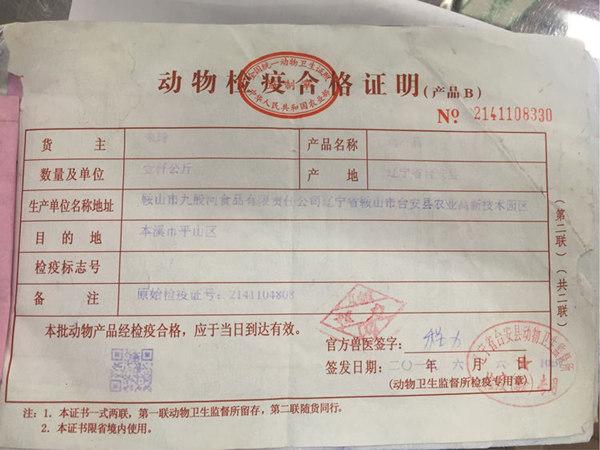 全国统一动物卫生证明
中华人民共和国农业部
动物检疫合格证明(产品B)
№ 2141108330
货 主
产品名称
数量及单位 壹仟公斤
产 地 辽宁省
生产单位名称地址 鞍山市九股河食品有限责任公司辽宁省鞍山市台安县农业高新技术园区
目 的 地 本溪市平山区
检疫标志号
备 注 原始检疫证号:2141104803
本批动物产品经检疫合格,应于当日到达有效。
官方兽医签字:
签发日期: 二〇一 年 六 月 六 日
(动物卫生监督所检疫专用章)
台安县动物卫生监督所
(第二联)(共二联)
注:1. 本证书一式两联,第一联动物卫生监督所留存,第二联随货同行。
2. 本证书限省境内使用。